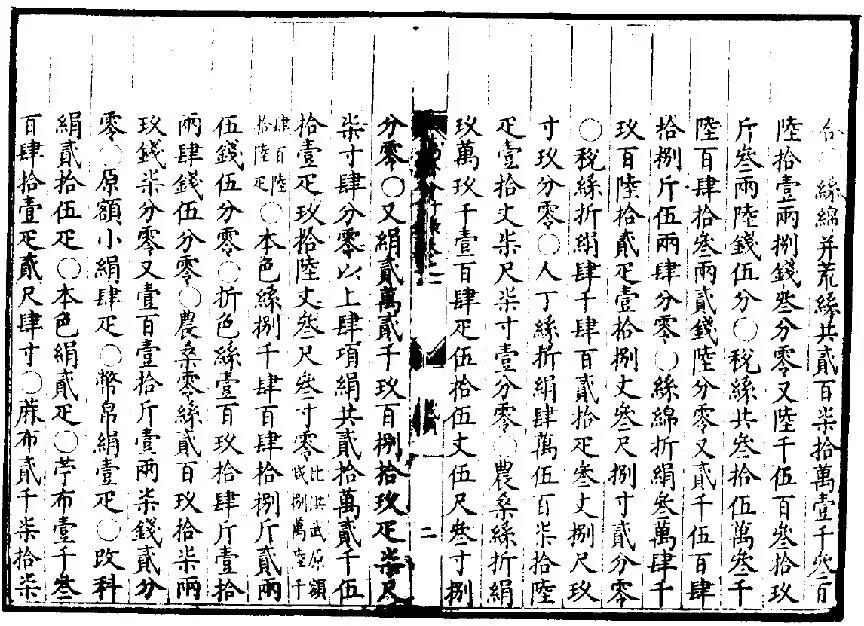 合〇絲綿并荒絲共貳百柒拾萬壹千叄百
陸拾壹兩捌錢叄分零又陸千伍百叄拾玖
斤叄兩陸錢伍分〇稅絲共叄拾伍萬叄千
陸百肆拾叄兩貳錢陸分零又貳千伍百肆
拾捌斤伍兩肆分零〇絲綿折絹叄萬肆千
玖百陸拾貳疋壹拾捌丈叄尺捌寸貳分零
〇稅絲折絹肆千肆百貳拾疋叄丈捌尺玖
寸玖分零〇人丁絲折絹肆萬伍百柒拾陸
疋壹拾丈柒尺柒寸壹分零〇農桑絲折絹
玖萬玖千壹百肆疋伍拾伍丈伍尺叄寸捌
二
分零〇又絹貳萬貳千玖百捌拾玖疋柒尺
柒寸肆分零以上肆項絹共貳拾萬貳千伍
拾壹疋玖拾陸丈叄尺叄寸零比洪武原額減捌萬陸千
肆百陸拾陸疋〇本色絲捌千肆百肆拾捌斤貳兩
伍錢伍分零〇折色絲壹百玖拾肆斤壹拾
兩肆錢伍分零〇農桑零絲貳百玖拾柒兩
玖錢柒分零又壹百壹拾斤壹兩柒錢貳分
零〇原額小絹肆疋〇幣帛絹壹疋〇改科
絹貳拾伍疋〇本色絹貳疋〇苧布壹千叄
百肆拾壹疋貳尺肆寸〇麻布貳千柒拾柒